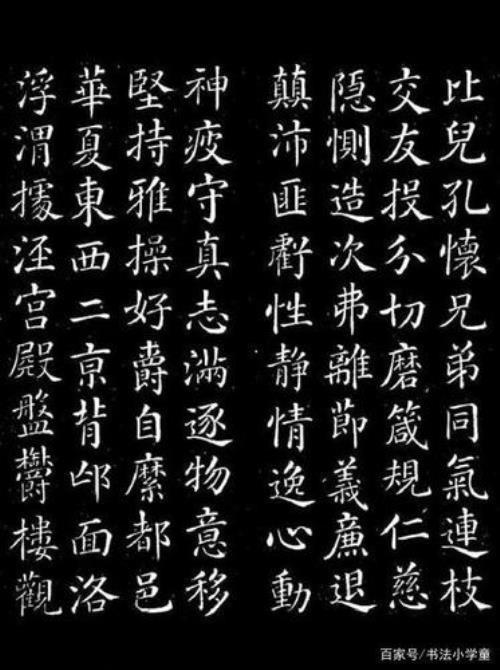 比兒孔懷兄弟同氣連枝
交友投分切磨箴規仁慈
隐惻造次弗離節義廉退
顛沛匪虧性静情逸心動
神疲守真志滿逐物意移
堅持雅操好爵自縻都邑
華夏東西二京背邙面洛
浮渭據涇宫殿盤欝樓觀
百家号/书法小学童